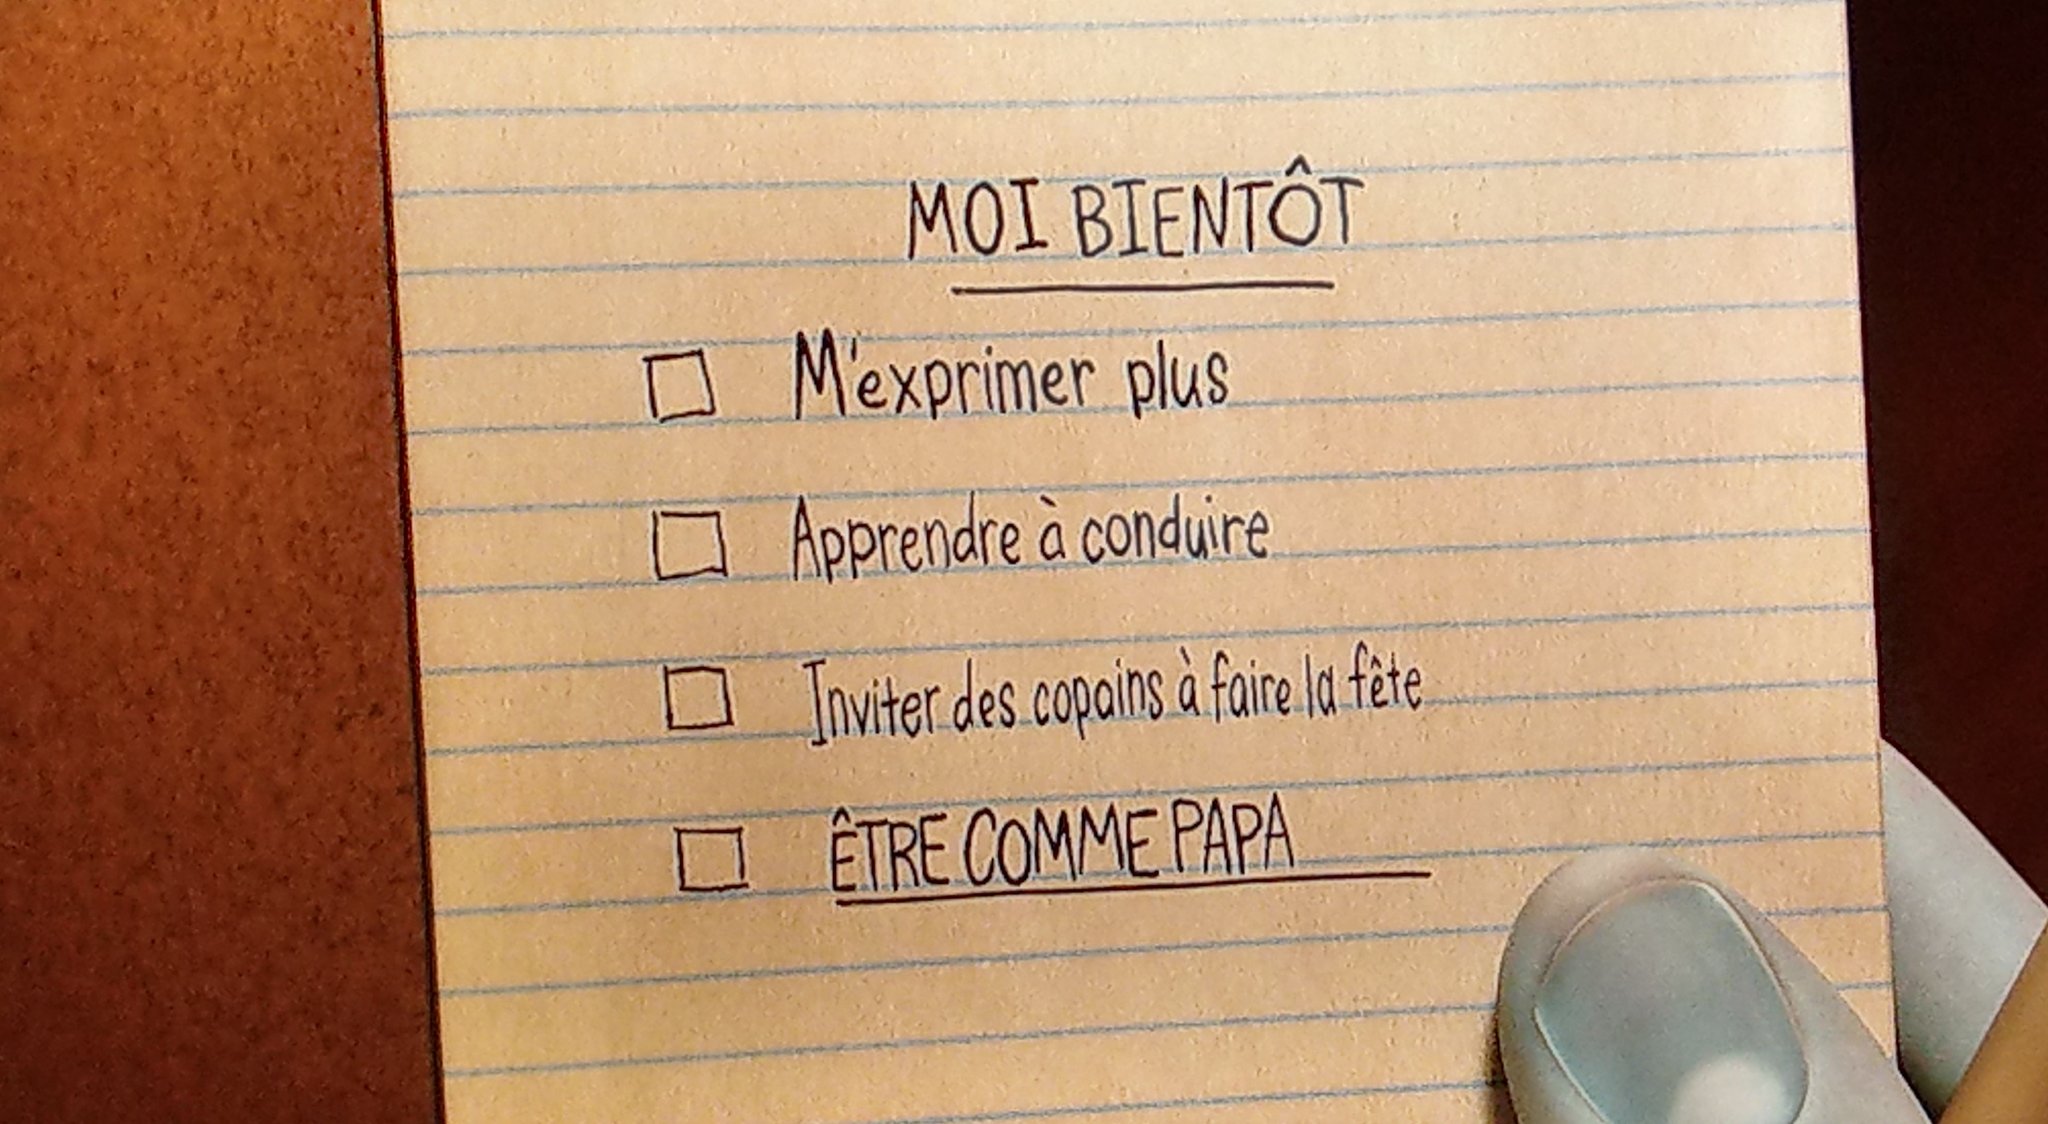 MOI BIENTÔT
M'exprimer plus
Apprendre à conduire
Inviter des copains à faire la fête
ÊTRE COMME PAPA